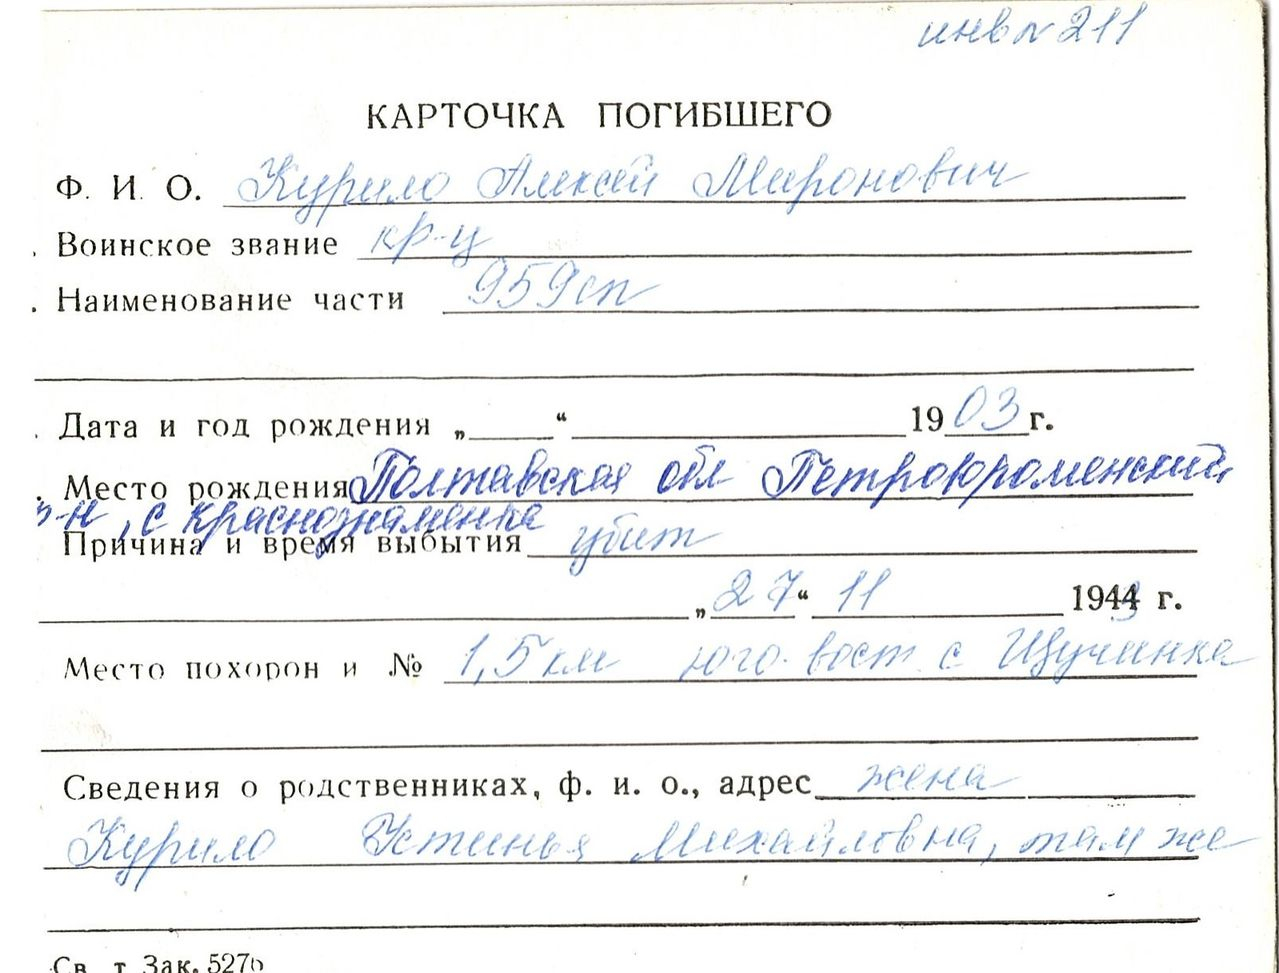 инв № 211
КАРТОЧКА ПОГИБШЕГО
Ф. И. О. Курило Алексей Миронович
Воинское звание кр-ц
Наименование части 959 сп
Дата и год рождения „ “ 1903 г.
Место рождения Полтавская обл Петрокроменский
р-н, с Краснознаменка
Причина и время выбытия убит
„27“ 11 1943 г.
Место похорон и № 1,5 км юго-вост. с Щучинка
Сведения о родственниках, ф. и. о., адрес жена
Курило Устинья Михайловна, там же
Св. т. Зак. 527